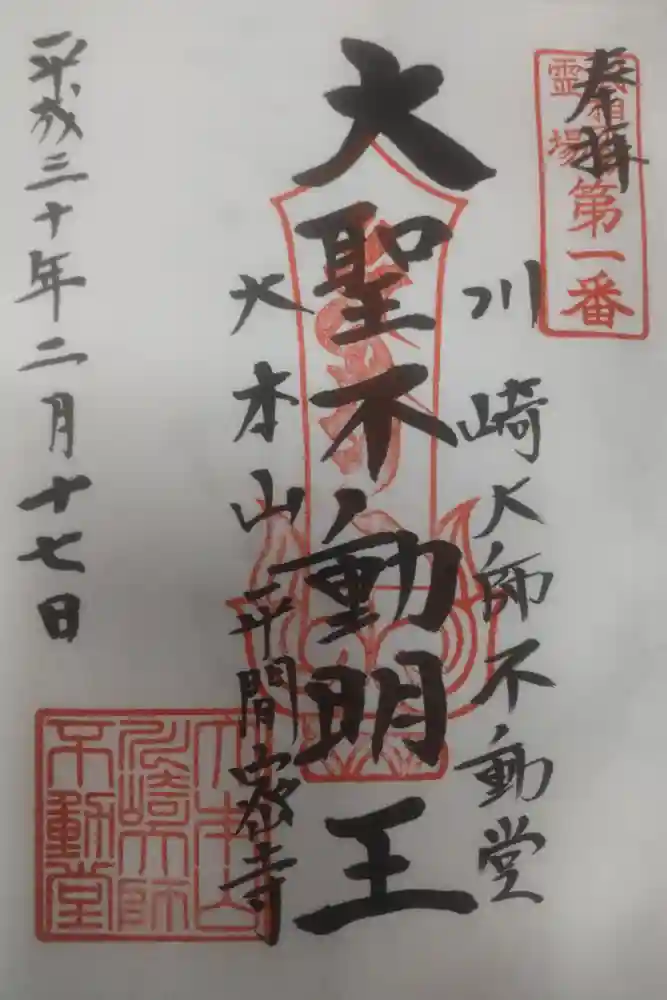 奉拝
霊場
第一番
川崎大師不動堂
大聖不動明王
大本山平間密寺
大本山
川崎大師
不動堂
平成三十年二月十七日